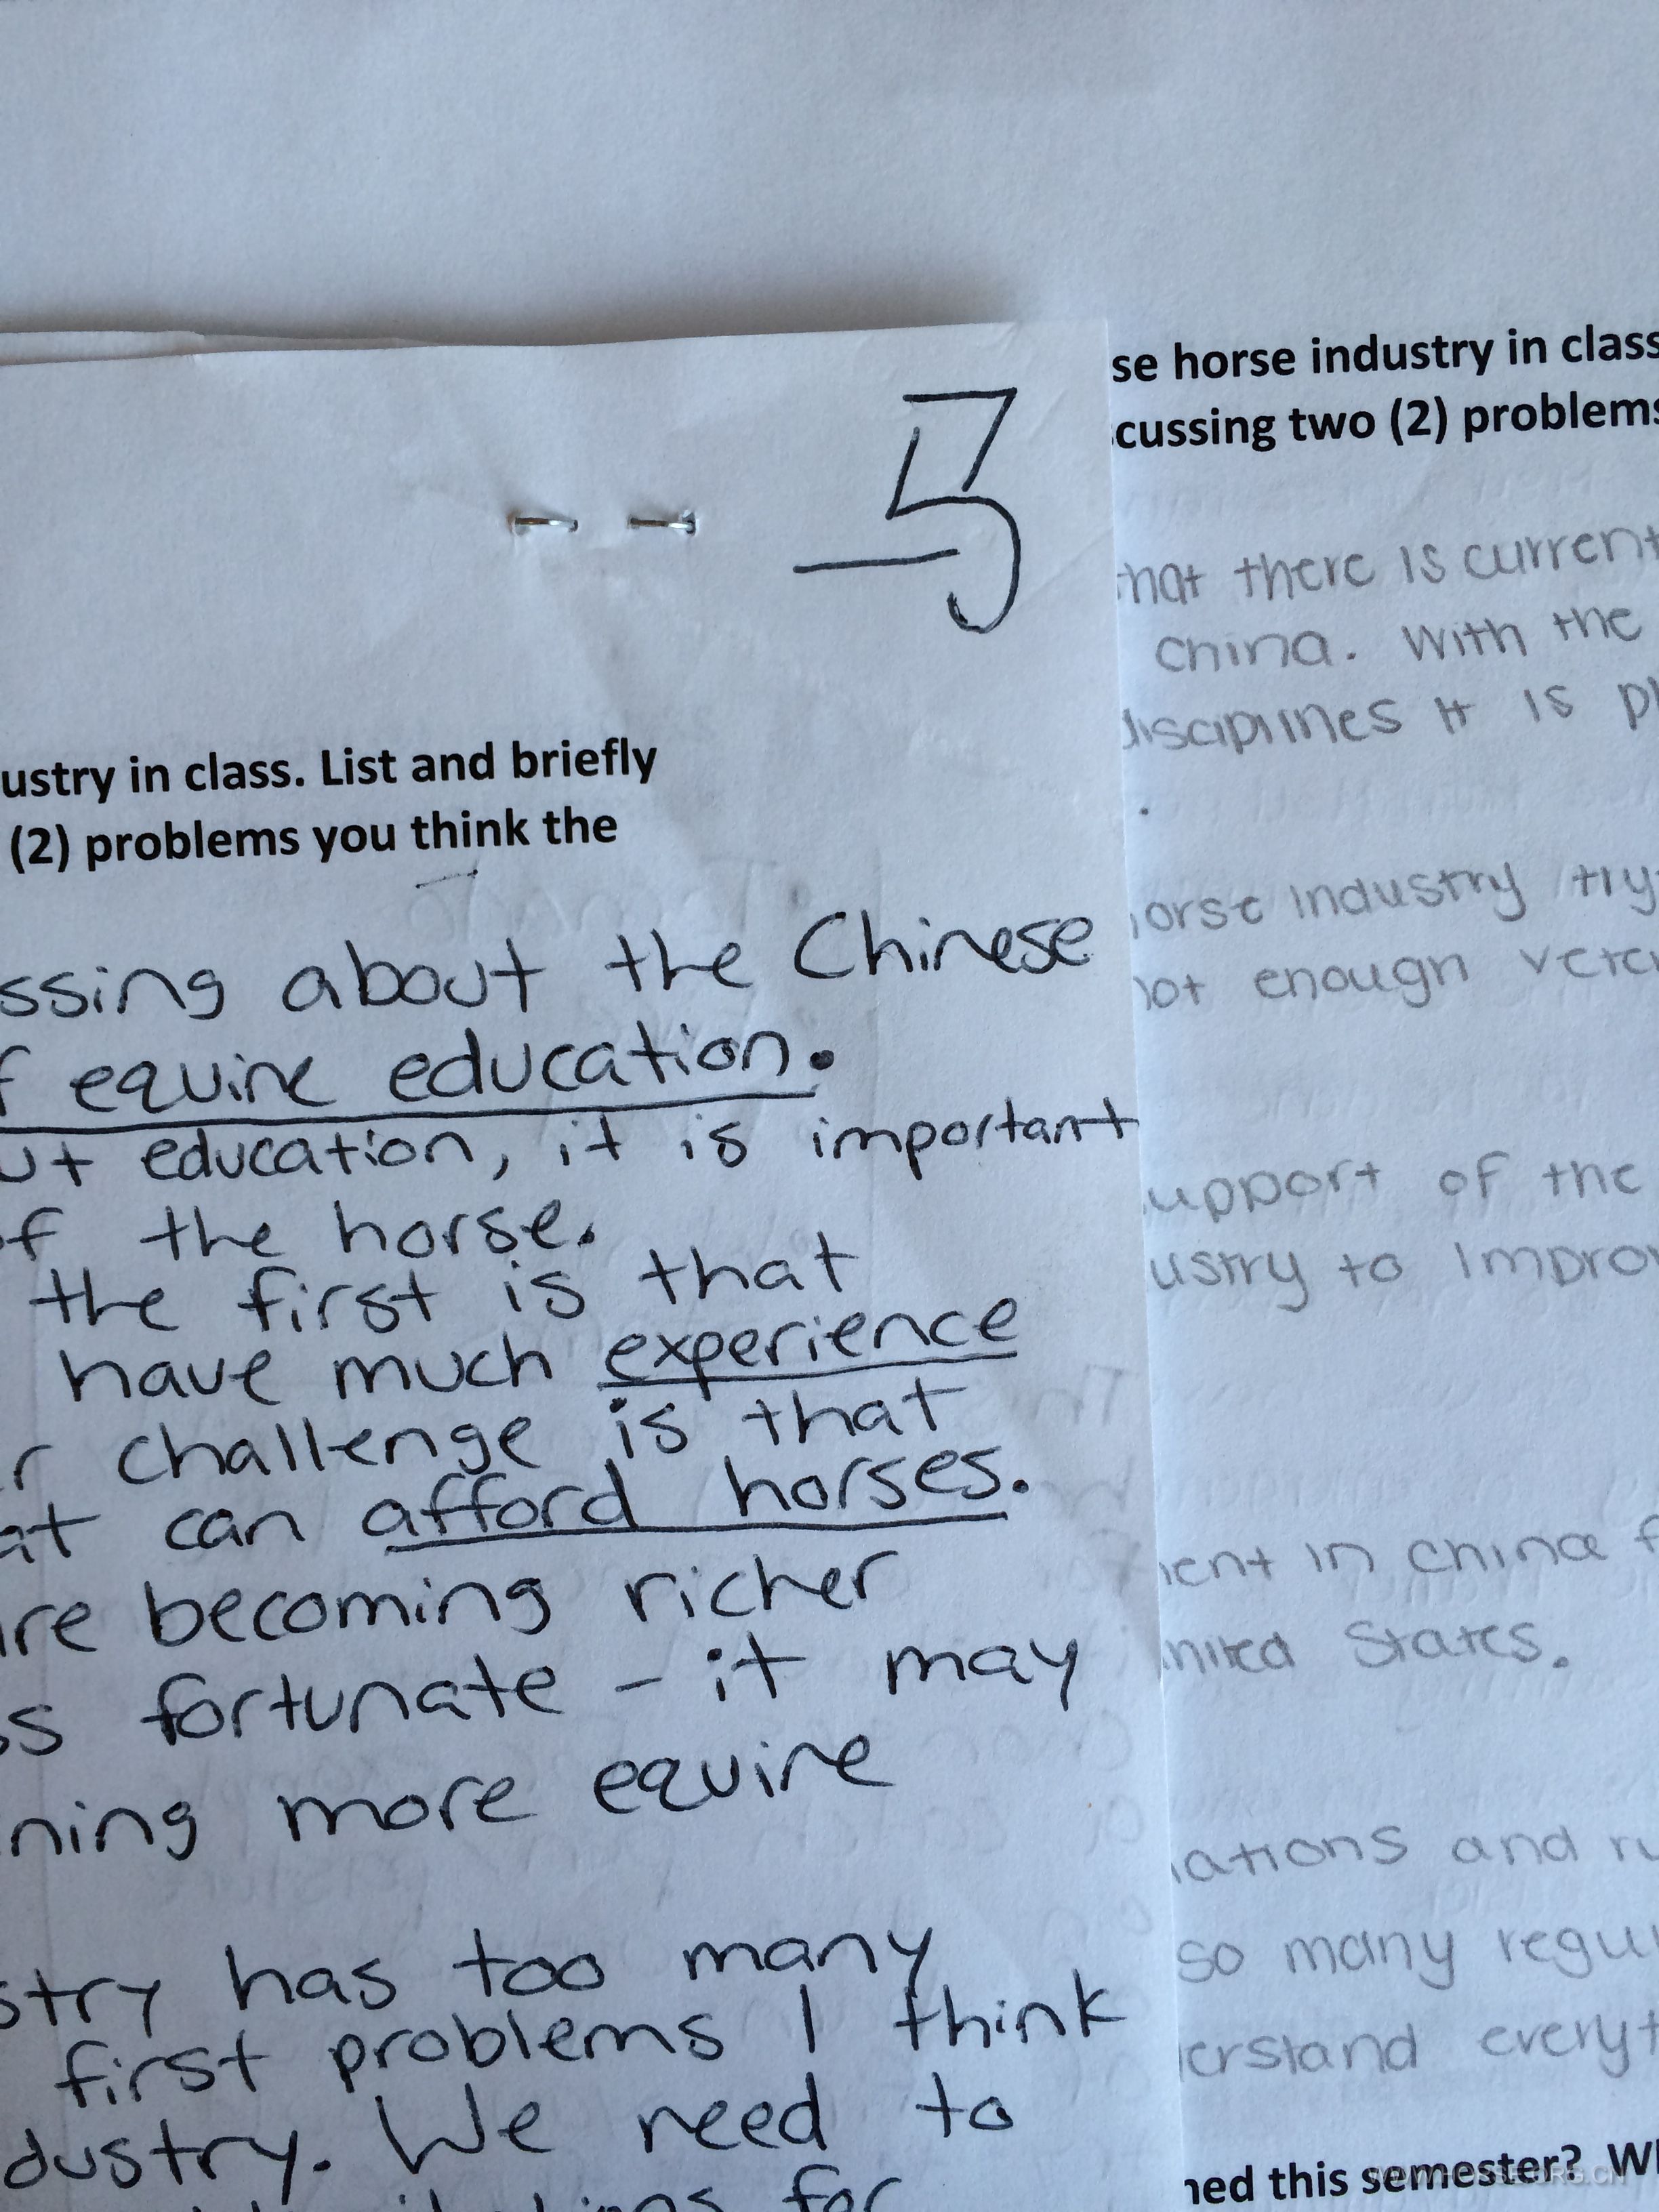 ustry in class. List and briefly
(2) problems you think the
ssing about the Chinese
f equine education.
ut education, it is important
of the horse.
the first is that
have much experience
r challenge is that
at can afford horses.
are becoming richer
ss fortunate - it may
ning more equine
stry has too many
first problems I think
dustry. We need to
for
se horse industry in class
cussing two (2) problems
hat there is current
china. With the
disciplines it is pl
orse industry try
not enough veter
upport of the
ustry to improv
ent in china f
nited States.
ations and ru
so many regul
erstand everyt
ned this semester? Wh